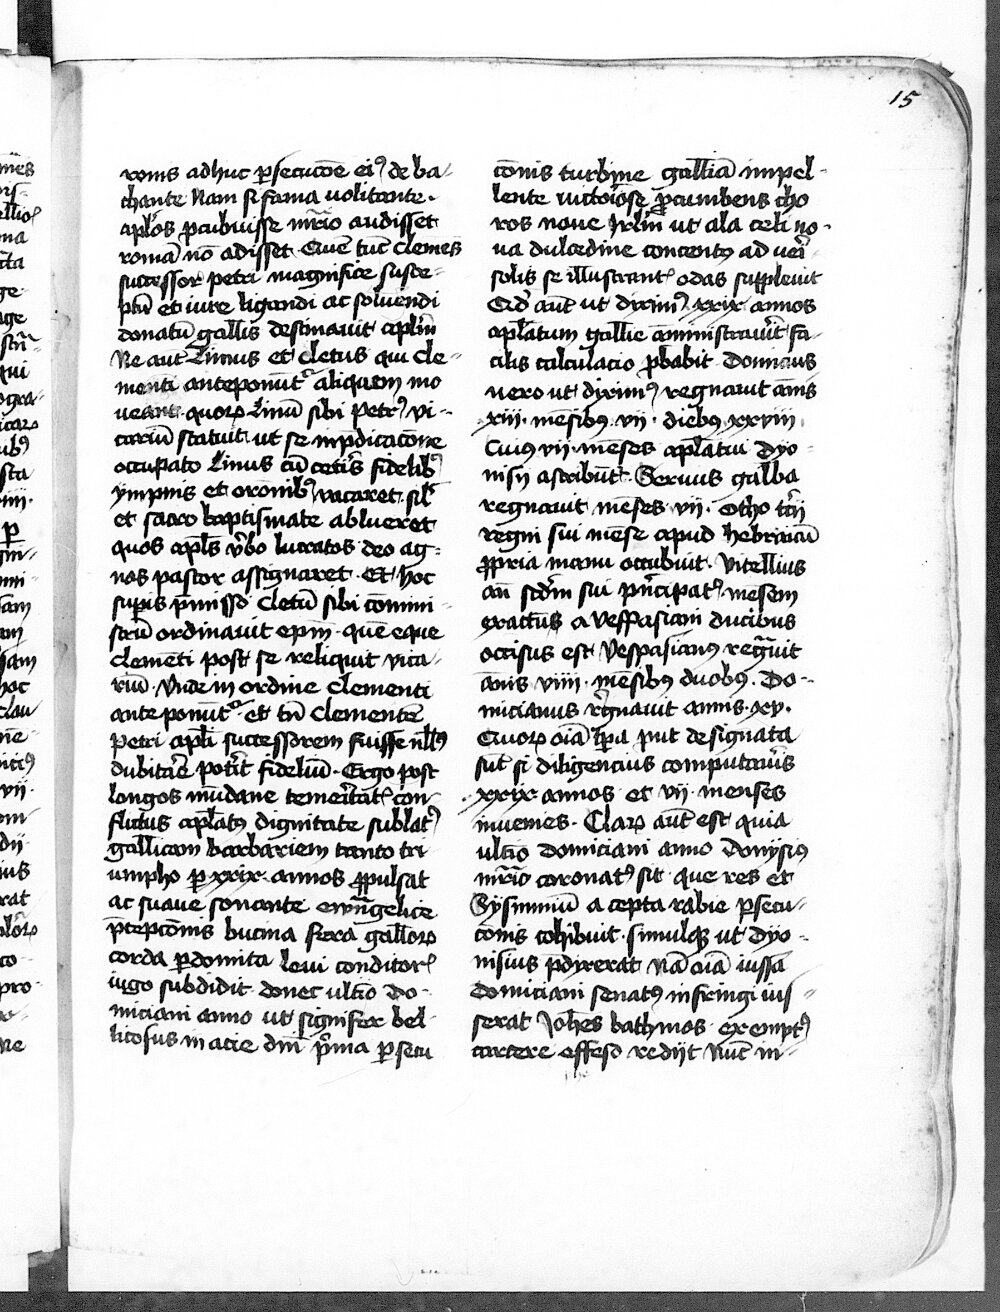 15
ronis adhuc ꝑsecucōe eiꝰ de ba-
chante Nam si fama uolitante.
aplōs ꝓcubuisse mr̄io audisset
romā nō adisset Quē tūc Clemēs
successor petri magnifice susce-
ptū et iure ligandi ac soluendi
donatū gallis destinauit aplm̄
Ne aut̄ Linus et Cletus qui Cle-
menti anteponūt᷑ aliquem mo
ueant quoꝝ Linū sibi Petrꝰ vi-
cariū statuit ut se in p̄dicacōne
occupato Linus cū cet̄is fidelibꝰ
ympnis et or̄onibꝰ vacaret sil̄
et sacro baptismate ablueret
quos apl̄s v̄bo lucratos deo ag-
nos pastor assignaret Et hoc
suꝑis p̄misso Cletū sibi cōmi-
strū ordinauit ep̄m quē eque
Clemēti post se reliquit vica-
riū. Vnde in ordine Clementi
ante ponūt᷑ et tn̄ Clementē
Petri apl̄i successorem fuisse nll̄ꝰ
dubitar̄e pot̄it fideliū. Ergo post
longos mūdane temeritat᷑ con-
flctus apl̄atꝰ dignitate sublatꝰ
gallicam barbariem tanto tri
umpho ꝑ xxix annos ꝓpulsat
ac suaue sonante ewn̄gelice
p̄cepcōnis bucina fera galloꝝ
corda ꝑdomita leui conditor᷑
iugo subdidit donec ultīo Do-
miciani anno ut signifer bel-
licosus in acie dn̄i p̄ma ꝑsecu
cōnis turbine galliā impel-
lente uictoriose ꝓcumbens cho
ros noue Jrlm̄ ut ala celi no-
ua dulcedine concentꝰ ad veri
solis se illustrant᷑ odas suppleuit
Qd̄ aut̄ ut diximꝰ xxix annos
apl̄atum gallie am̄inistrau̅it fa-
cilis calculacio ꝓbabit Domicius
nero ut diximꝰ regnauit annis
xiii. mēsibꝰ vii. diebꝰ xxviii
Cuius vii mēses apl̄atui Dyo-
nisii ascribūt᷑. Seruius galba
regnauit mēses vii. Otho t̄cii
regni sui mēse apud hebriacū
ꝓpria manu occubuit. Vitellius
an̄ sedm̄ sui p̄ncipatꝰ mēsem
exactus a Vespasiani ducibus
occisus est Vespasianꝰ regn̄uit
ānis viiii mēsibꝰ duobꝰ. Do-
micianus r̄gnauit annis xv.
Quoꝝ oīa tp̄a p̄ut designata
sūt si diligencius computau̅is
xxix annos et vii menses
inuenies. Claꝝ aut̄ est quia
ultīo domiciani anno Dionysiꝰ
mr̄io coronatꝰ sit que res et
Sysinniū a cepta rabie ꝑsecu-
cōnis cohibuit. simulqꝫ ut Dyo-
nisius p̄dixerat Nā oīa iussa
Domiciani senatꝰ infringi ius-
serat Joh̄es bathmos exemptꝰ
carcere effeso rediit Nūc in-